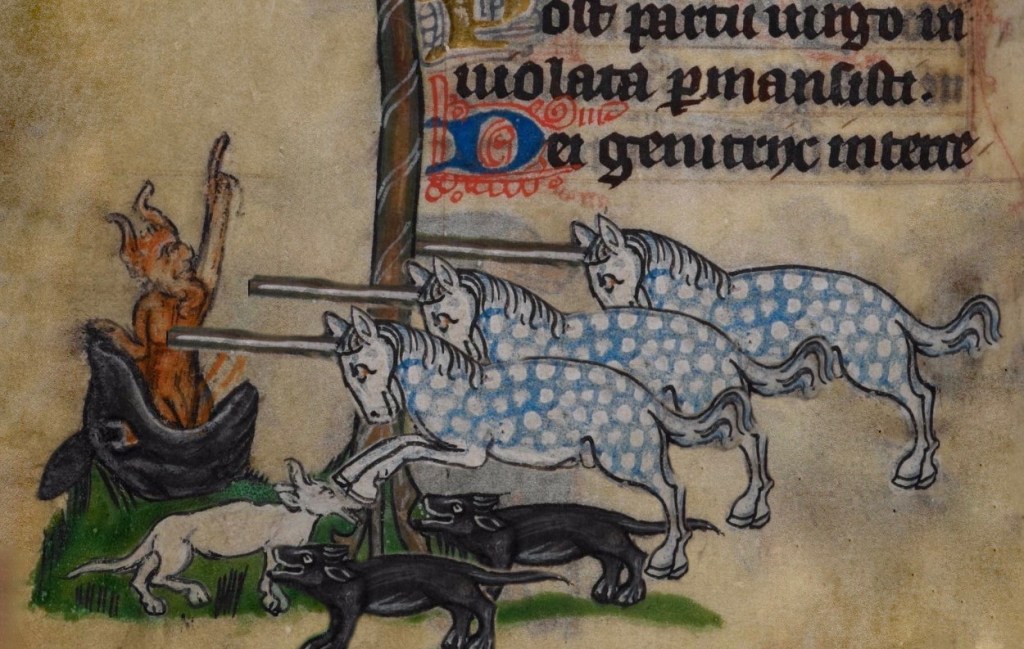 Post partu uirgo in
uiolata ꝑmansisti.
Dei genitrix interce